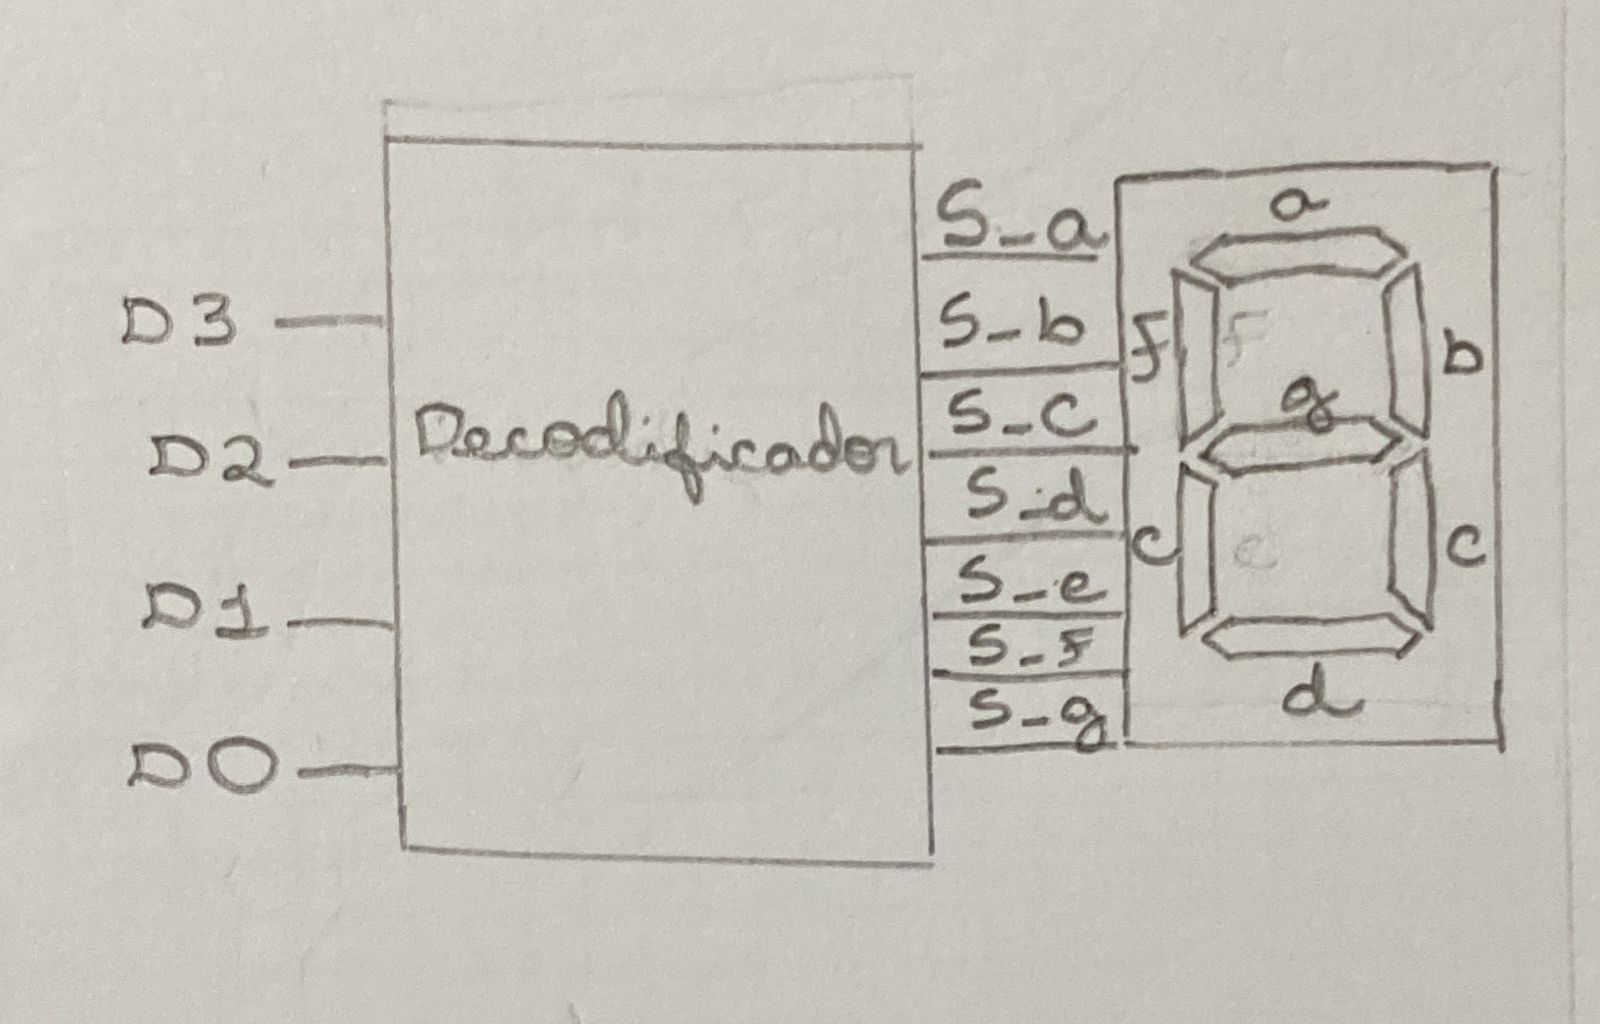 D3
D2
D1
D0
Decodificador
S_a
S_b
S_c
S_d
S_e
S_F
S_g
a
F
F
b
g
c
e
c
d